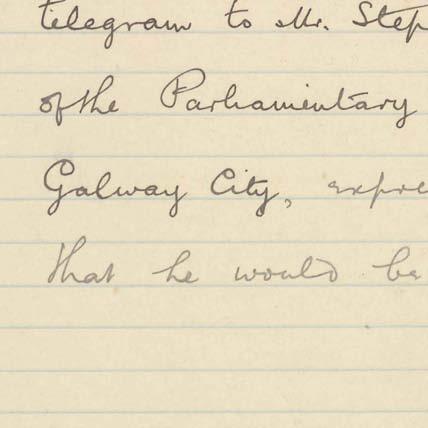 telegram to Mr. Step
of the Parliamentary
Galway City, expre
that he would be